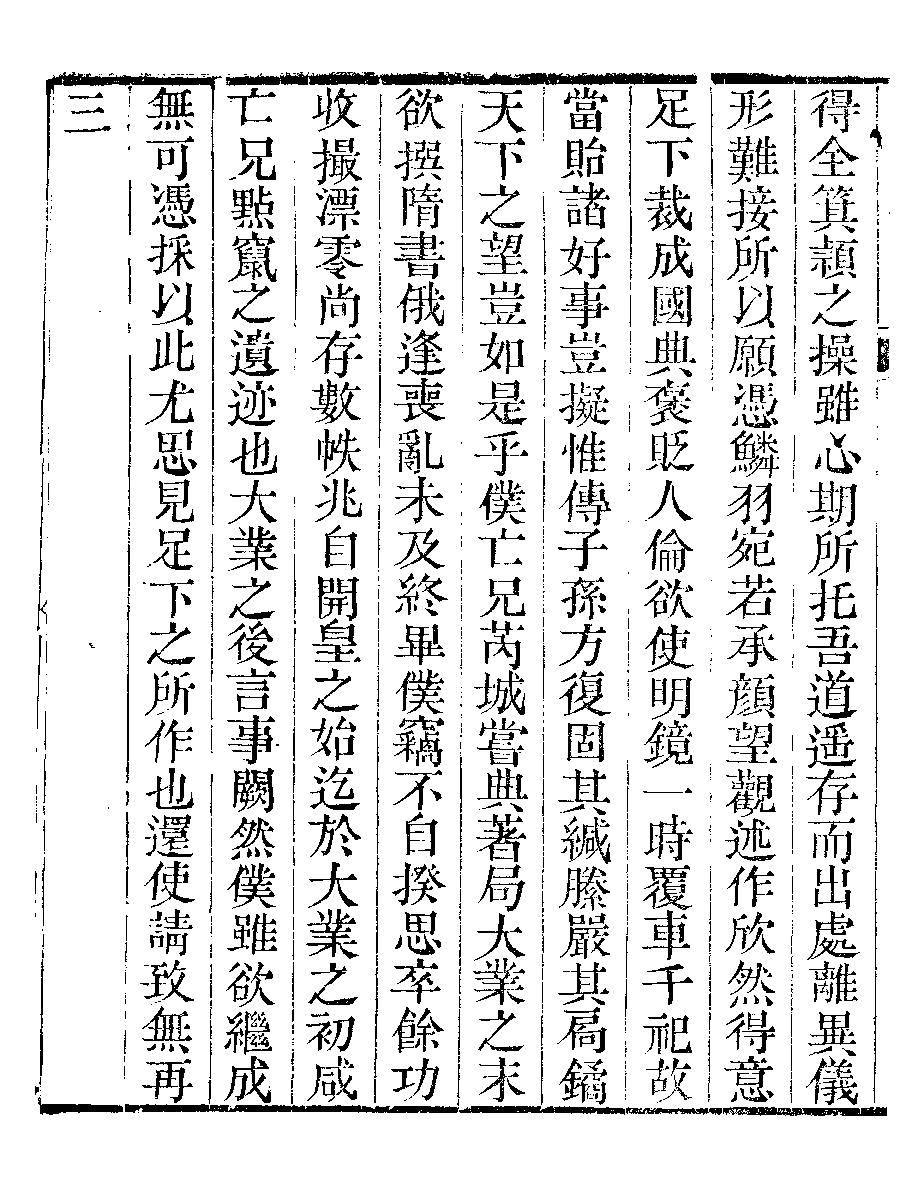 得全箕頴之操雖心期所托吾道遥存而出處離異儀
形難接所以願憑鱗羽宛若承顔望觀述作欣然得意
足下裁成國典褒貶人倫欲使明鏡一時覆車千祀故
當貽諸好事豈擬惟傳子孫方復固其緘縢嚴其扄鐍
天下之望豈如是乎僕亡兄芮城嘗典著局大業之末
欲撰隋書俄逢喪亂未及終畢僕竊不自揆思卒餘功
收撮漂零尚存數帙兆自開皇之始迄於大業之初咸
亡兄點竄之遺迹也大業之後言事闕然僕雖欲繼成
無可憑採以此尤思見足下之所作也還使請致無再
三